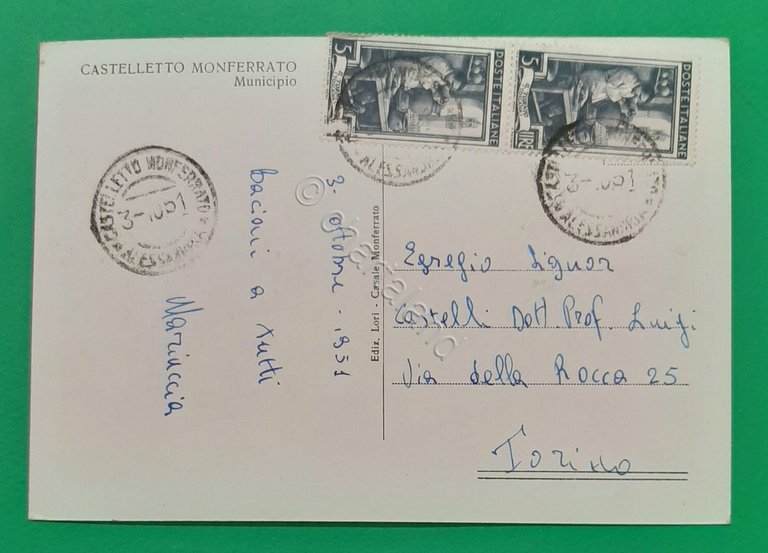 CASTELLETTO MONFERRATO
Municipio
5 LIRE
POSTE ITALIANE
5 LIRE
POSTE ITALIANE
ALESSANDRIA
CASTELLETTO MONFERRATO
3-10 51
ALESSANDRIA
CASTELLETTO MONFERRATO
3-10 51
ALESSANDRIA
3. ottobre - 1951
bacioni a tutti
Mariuccia
Ediz. Lori - Casale Monferrato
Egregio Signor
Castelli Dott. Prof. Luigi
Via della Rocca 25
Torino